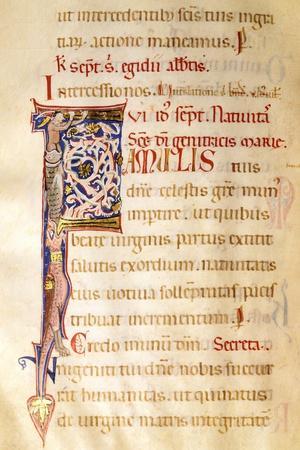 ut intercedentib; scis tuis ingra
tiaꝝ actione maneamus. P.
K̅ sept̄. s̄. egidii abbtis.
Intercessionos.
VI id sept̄. Natiuitas̄
Sc̄e dī genitricis marie.
FAMULIS tuis
dn̄e celestis gr̄e mun̄
imptire. ut quibus
beate uirginis partus extitit
salutis exordium. natiuitatis
eius uotiua sollempnitas pacis
tribuat incrementum. P.
Credo in unum dm̄. Secreta.
nigeniti tui dn̄e nobis succur
rat humanitas. ut qui natus
de uirgine matris integritatē